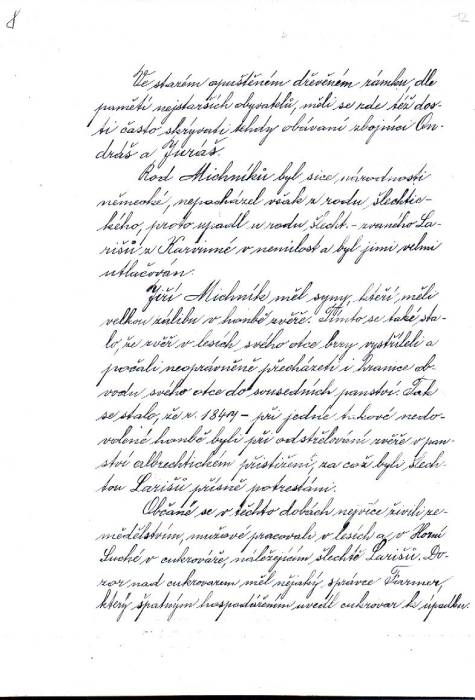 8
12
Ve starém opuštěném dřevěném zámku, dle
paměti nejstarších obyvatelů, měli se zde též dos-
ti často skrývati tehdy obávaní zbojníci On-
dráš a Juráš.
Rod Michníků byl sice, národnosti
německé, nepocházel však z rodu šlechtic-
kého, proto upadl u rodu, šlecht.- zvaného La-
rišů z Karvinné v nemilost a byl jimi velmi
utlačován.
Jiří Michník měl syny, kteří, měli
velkou zálibu v honbě zvěře. Tímto se také sta-
lo, že zvěř v lesích svého otce brzy vystříleli a
počali neoprávněně přecházeti i hranice ob-
vodu svého otce do sousedních panství. Tak
se stalo, že r. 1849 - při jedné takové nedo-
volené honbě byli při odstřelování zvěře v pan-
ství albrechtickém přistiženi, za což byli šlech-
tou Larišů přísně potrestáni.
Občané se v těchto dobách nejvíce živili ze-
mědělstvím, mužové pracovali v lesích a v Horní
Suché v cukrováře, náležejícím šlechtě Larišů. Do-
zor nad cukrovarem měl nějaký správce Farmer,
který špatným hospodářením uvedl cukrovar k úpadku.